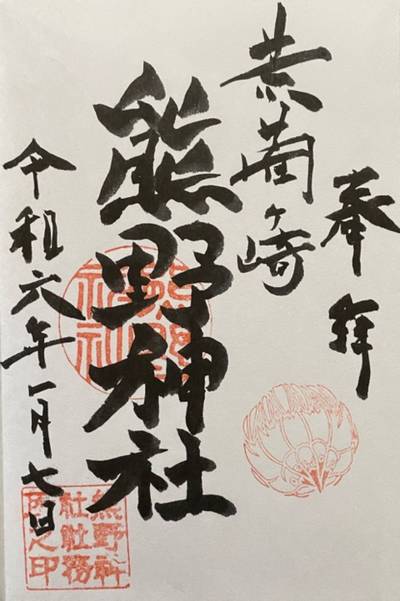 奉拝
荒藺ヶ崎
熊野神社
令和六年一月七日
熊野
神社
熊野神
社社務
所之印